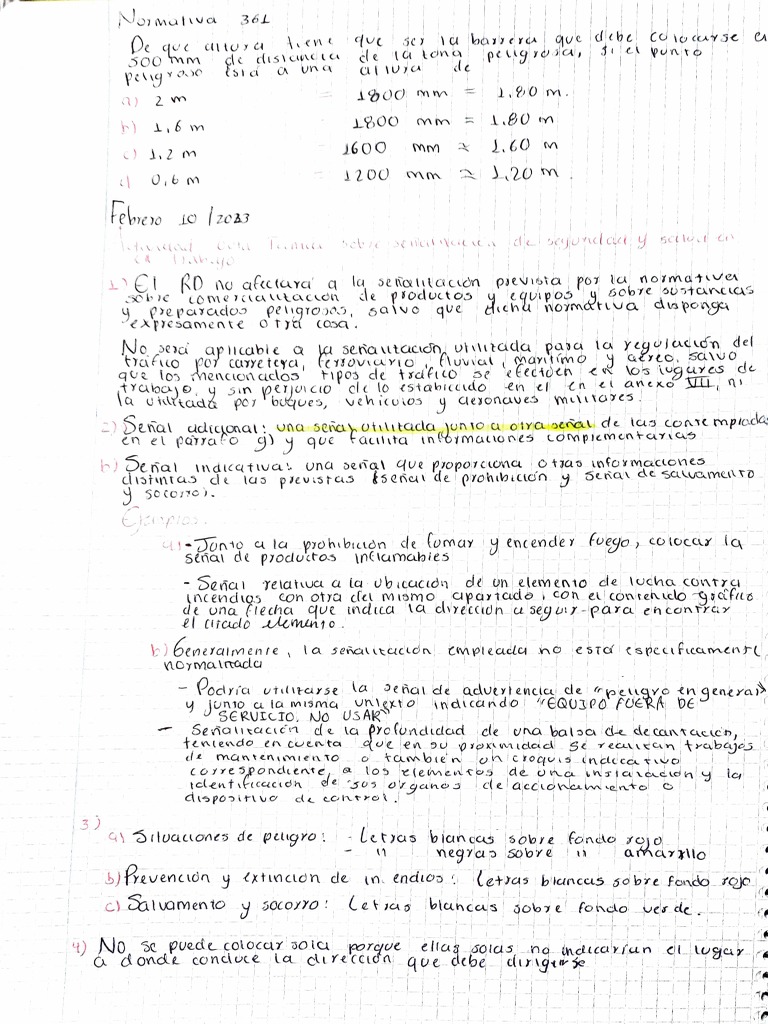 Normativa 361
De que altura tiene que ser la barrera que debe colocarse a
500 mm de distancia de la zona peligrosa, si el punto
peligroso está a una altura de
a) 2 m = 1800 mm = 1,80 m.
b) 1,6 m 1800 mm = 1.80 m
c) 1,2 m 1600 mm ≈ 1,60 m
d) 0,6 m = 1200 mm ≈ 1,20 m.
Febrero 10 / 2023
sobre señalización de seguridad y salud en
el trabajo
1) El RD no afectará a la señalización prevista por la normativa
sobre comercialización de productos y equipos y sobre sustancias
y preparados peligrosos, salvo que dicha normativa disponga
expresamente otra cosa.
No será aplicable a la señalización utilizada para la regulación del
tráfico por carretera, ferroviario, fluvial, marítimo y aéreo, salvo
que los mencionados tipos de tráfico se efectúen en los lugares de
trabajo, y sin perjuicio de lo establecido en el en el anexo VII, ni
la utilizada por buques, vehículos y aeronaves militares.
2) Señal adicional: una señal utilizada junto a otra señal de las contempladas
en el párrafo g) y que facilita informaciones complementarias
b) Señal indicativa: una señal que proporciona otras informaciones
distintas de las previstas (señal de prohibición y señal de salvamento
y socorro).
Ejemplos.
a) - Junto a la prohibición de fumar y encender fuego, colocar la
señal de productos inflamables
- Señal relativa a la ubicación de un elemento de lucha contra
incendios con otra del mismo apartado, con el contenido gráfico
de una flecha que indica la dirección a seguir para encontrar
el citado elemento.
b) Generalmente, la señalización empleada no está específicamente
normalizada
- Podría utilizarse la señal de advertencia de "peligro en general"
y junto a la misma un texto indicando "EQUIPO FUERA DE
SERVICIO. NO USAR"
- Señalización de la profundidad de una balsa de decantación,
teniendo en cuenta que en su proximidad se realizan trabajos
de mantenimiento o también un croquis indicativo
correspondiente, a los elementos de una instalación y la
identificación de sus órganos de accionamiento o
dispositivo de control.
3)
a) Situaciones de peligro: - Letras blancas sobre fondo rojo
- " negras sobre " amarillo
b) Prevención y extinción de in endios: Letras blancas sobre fondo rojo
c) Salvamento y socorro: Letras blancas sobre fondo verde.
4) No se puede colocar sola porque ellas solas no indicarían el lugar
a donde conduce la dirección que debe dirigirse